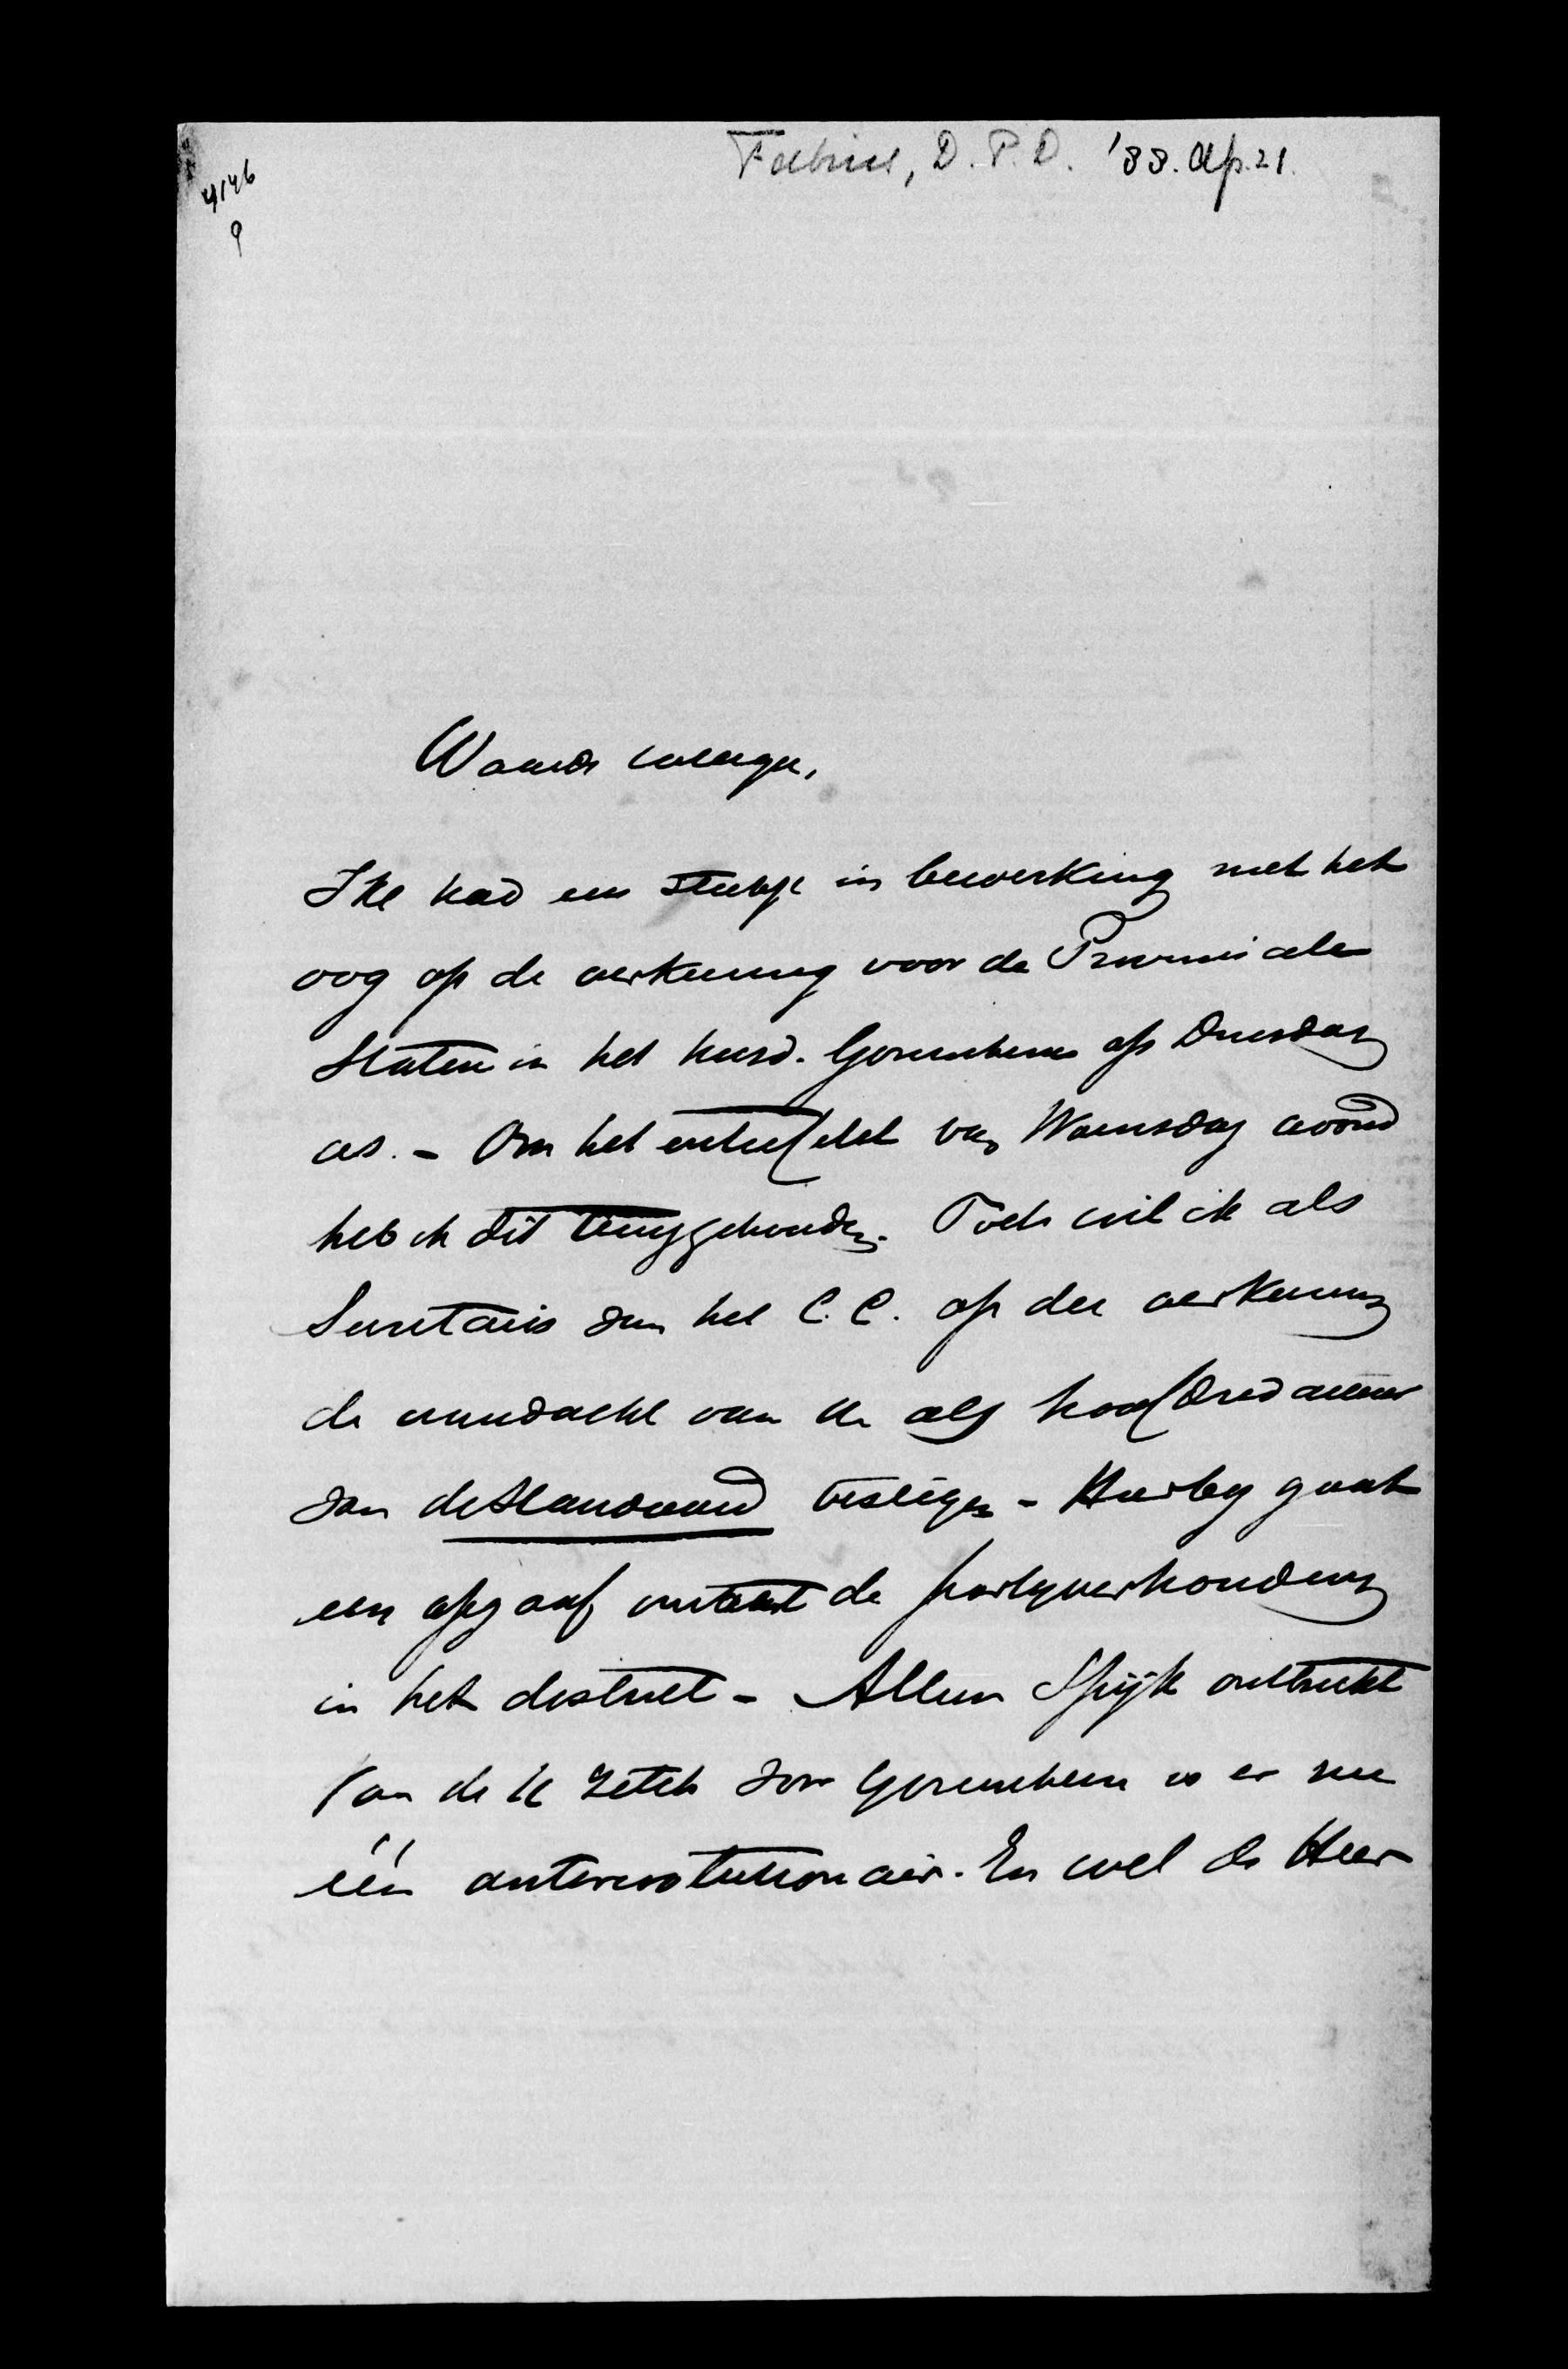 Fabius, D. P. D. '88. Ap. 21.
4146
9
Waarde collega,
Ik had een stukje in bewerking met het
oog op de verkiezing voor de Provinciale
Staten in het kiesd. Gorinchem op Dinsdag
as. - Om het entrefilet van Woensdag avond
heb ik dit teruggehouden. Toch wil ik als
Secretaris van het C. C. op die verkiezing
de aandacht van U als hoofdredacteur
van de Standaard vestigen - Hierbij gaat
een opgaaf omtrent de partijverhouding
in het district - Alleen Spijk ontbreekt
Van de zetels voor Gorinchem is er nu
één antirevolutionair. En wel de Heer